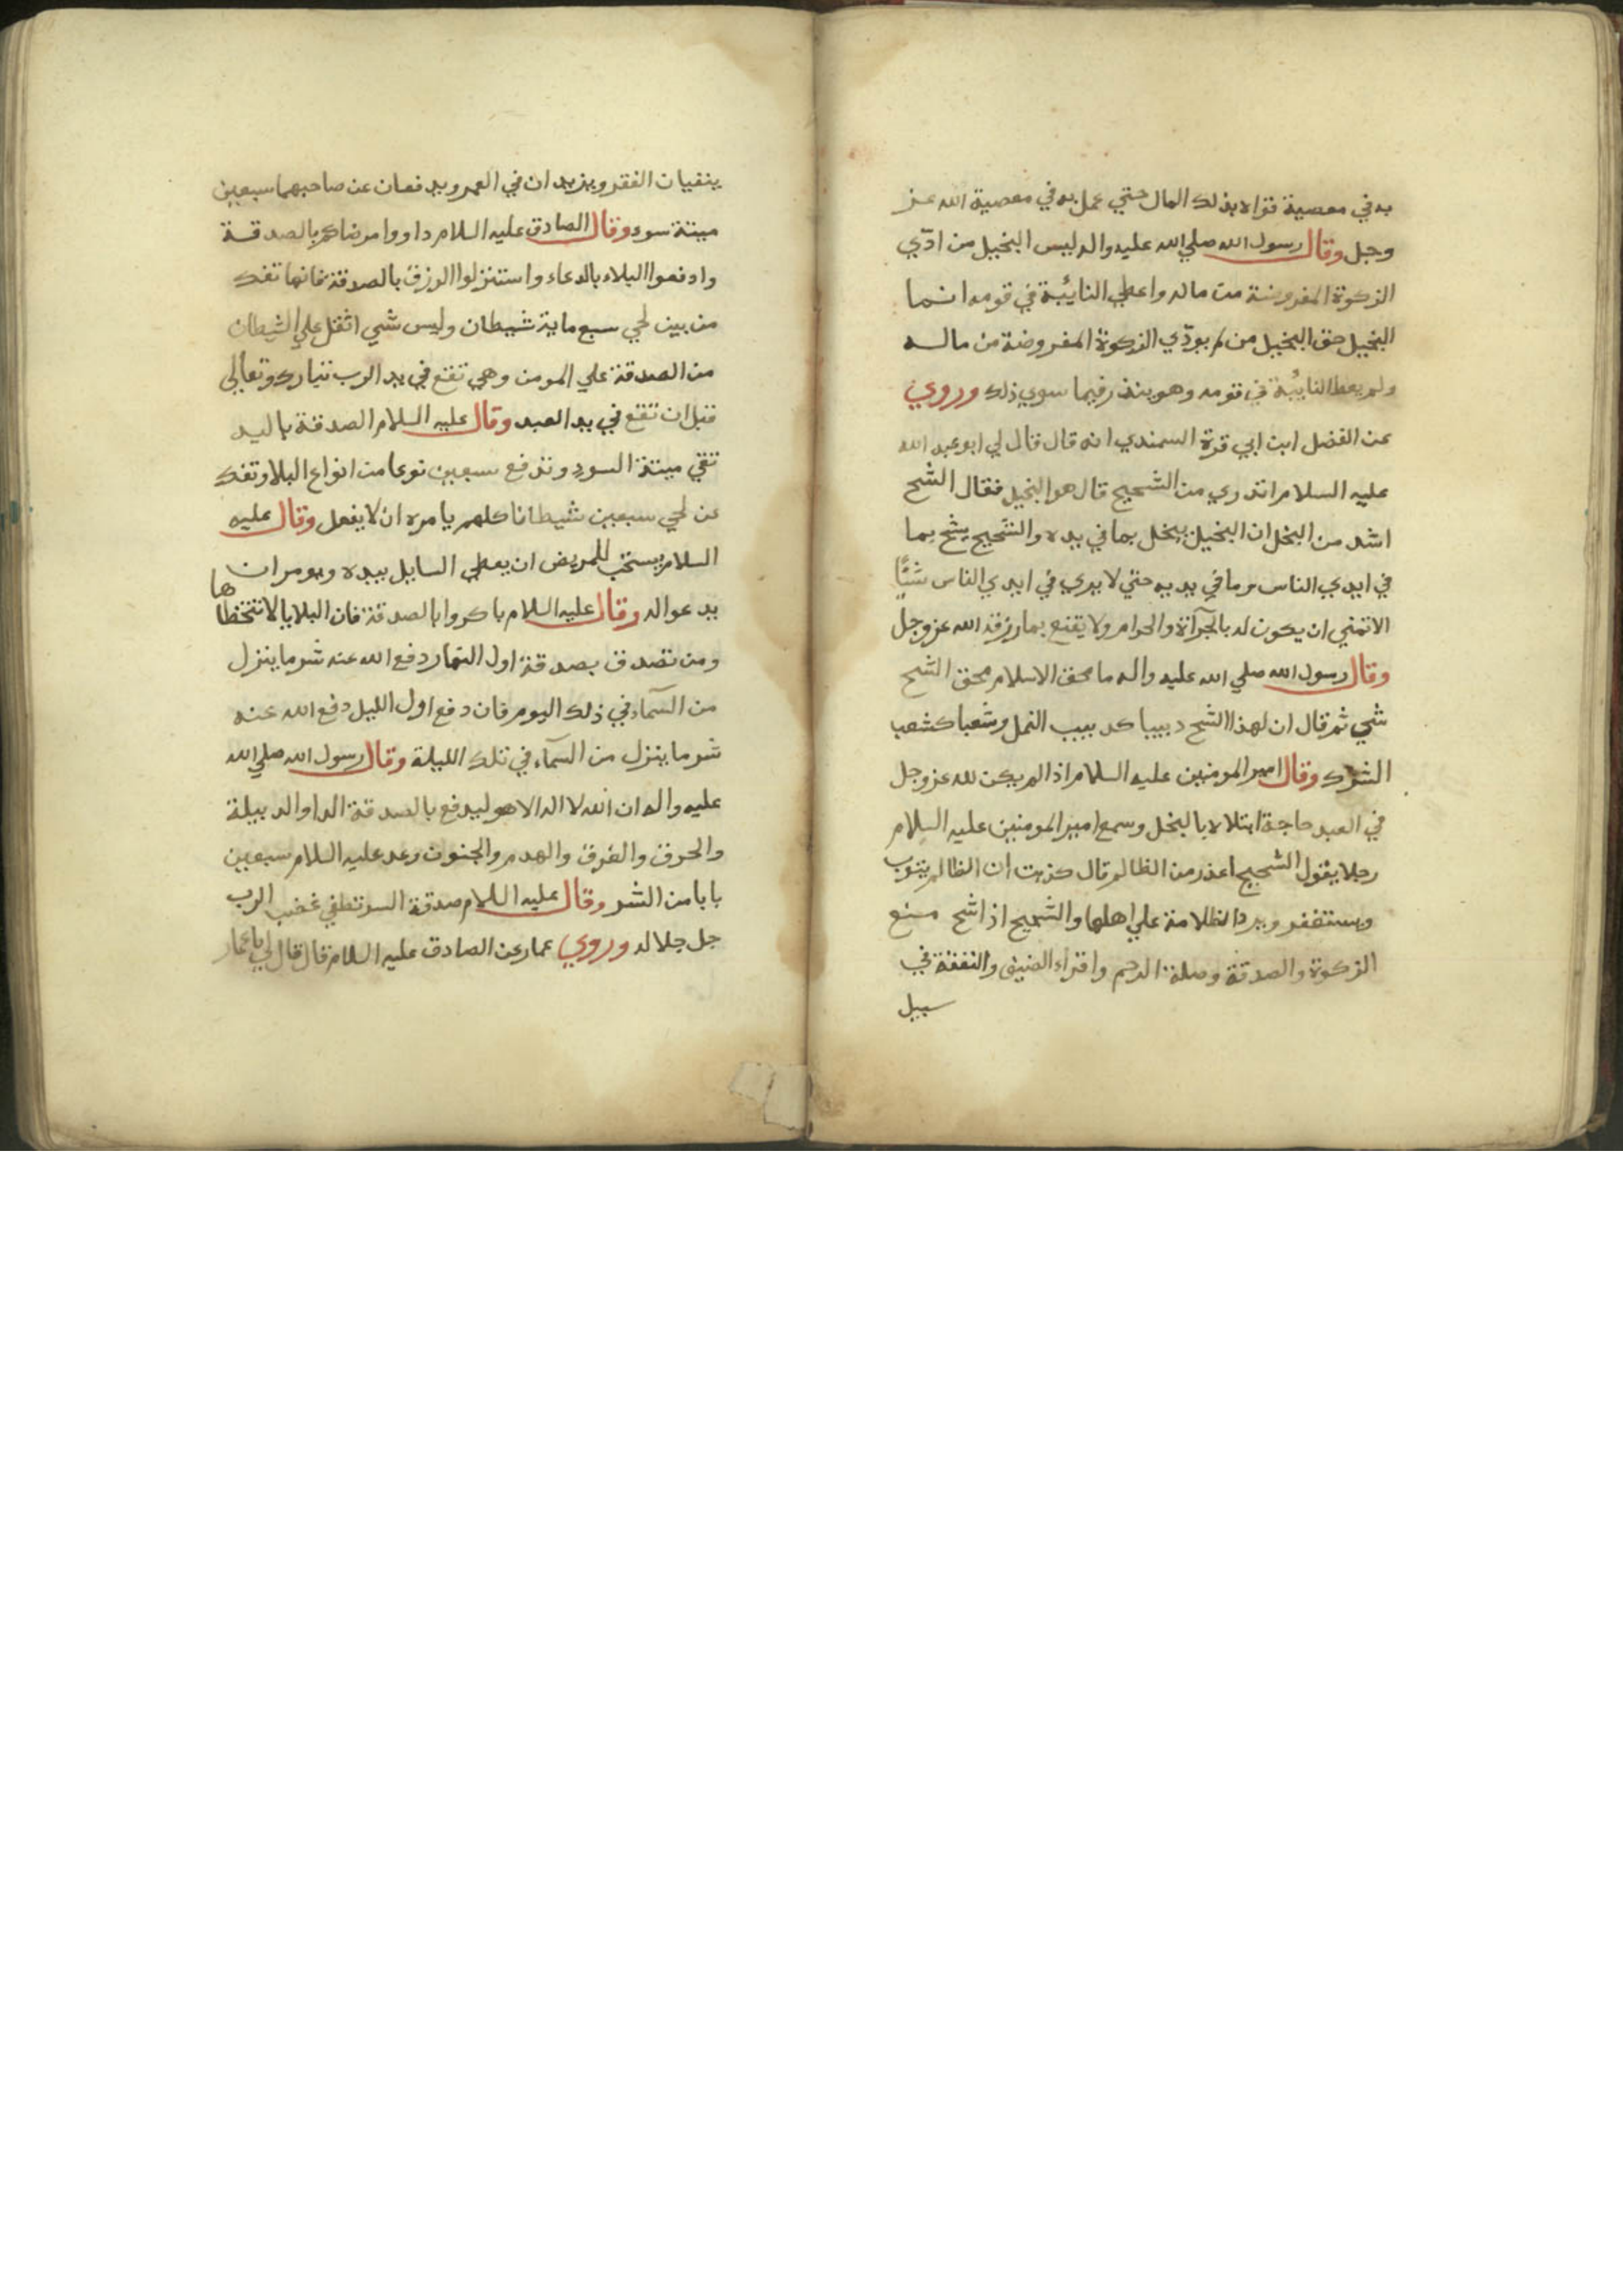 به في معصية قواه بذلك المال حتي عمل به في معصية الله عز
وجل وقال رسول الله صلي الله عليه واله ليس البخيل من ادّي
الزكوة المفروضة من ماله واعطي النائبة في قومه انما
البخيل حق البخيل من لم يودّي الزكوة المفروضة من ماله
ولم يعط النائبة في قومه وهو يبذر فيما سوي ذلك وروي
عن الفضل ابن ابي قرة السمندي انه قال قال لي ابو عبد الله
عليه السلام اتدري من الشحيح قال هو البخيل فقال الشح
اشد من البخل ان البخيل يبخل بما في يده والشحيح يشح بما
في ايدي الناس وما في يديه حتي لا يري في ايدي الناس شئًا
الا تمني ان يكون له بالحرآة والحرام ولا يقنع بما رزقه الله عز وجل
وقال رسول الله صلي الله عليه واله ما محق الاسلام محق الشح
شي ثم قال ان لهذا الشح دبيبا كدبيب النمل وشعبا كشعب
الشرك وقال امير المومنين عليه السلام اذا لم يكن لله عز وجل
في العبد حاجة ابتلاه بالبخل وسمع امير المومنين عليه السلام
رجلا يقول الشحيح اعذر من الظالم قال كذبت ان الظالم يتوب
ويستغفر ويرد الظلامة علي اهلها والشحيح اذا شح منع
الزكوة والصدقة وصلة الرحم واقراء الضيف والنفقة في
سبيل
ينفيان الفقر ويزيدان في العمر ويدفعان عن صاحبهما سبعين
ميتة سوء وقال الصادق عليه السلام داووا مرضاكم بالصدقة
وادفعوا البلاء بالدعاء واستنزلوا الرزق بالصدقة فانها تفك
من بين لحي سبع ماية شيطان وليس شي اثقل علي الشيطان
من الصدقة علي المومن وهي تقع في يد الرب تبارك وتعالى
قبل ان تقع في يد العبد وقال عليه السلام الصدقة باليد
تقي ميتة السوء وتدفع سبعين نوعا من انواع البلا وتفك
عن لحي سبعين شيطانا كلهم يامره ان لا يفعل وقال عليه
السلام يستحب للمريض ان يعطي السايل بيده ويومر ان
يدعو اله وقال عليه السلام باكروا بالصدقة فان البلايا لا تتخطاها
ومن تصدق بصدقة اول النهار دفع الله عنه شر ما ينزل
من السمآء في ذلك اليوم فان دفع اول الليل دفع الله عنه
شر ما ينزل من السمآء في تلك الليلة وقال رسول الله صلي الله
عليه واله ان الله لا اله الا هو ليدفع بالصدقة الدا والدبيلة
والحرق والغرق والهدم والجنون وعد عليه السلام سبعين
بابا من الشر وقال عليه السلام صدقة السر تطفي غضب الرب
جل جلاله وروي عمار عن الصادق عليه السلام قال قال لي يا عمار